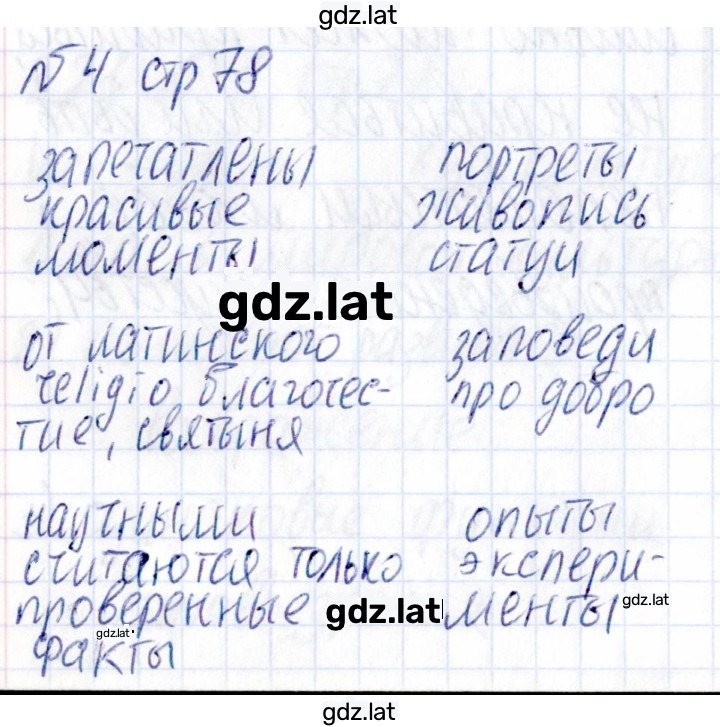 gdz.lat
№4 стр 78
запечатлены
красивые
моменты
портреты
живопись
статуи
gdz.lat
от латинского
religio благочес-
тие, святыня
заповеди
про добро
научными
считаются только
проверенные
факты
опыты
экспери-
менты
gdz.lat
gdz.lat
gdz.lat
gdz.lat